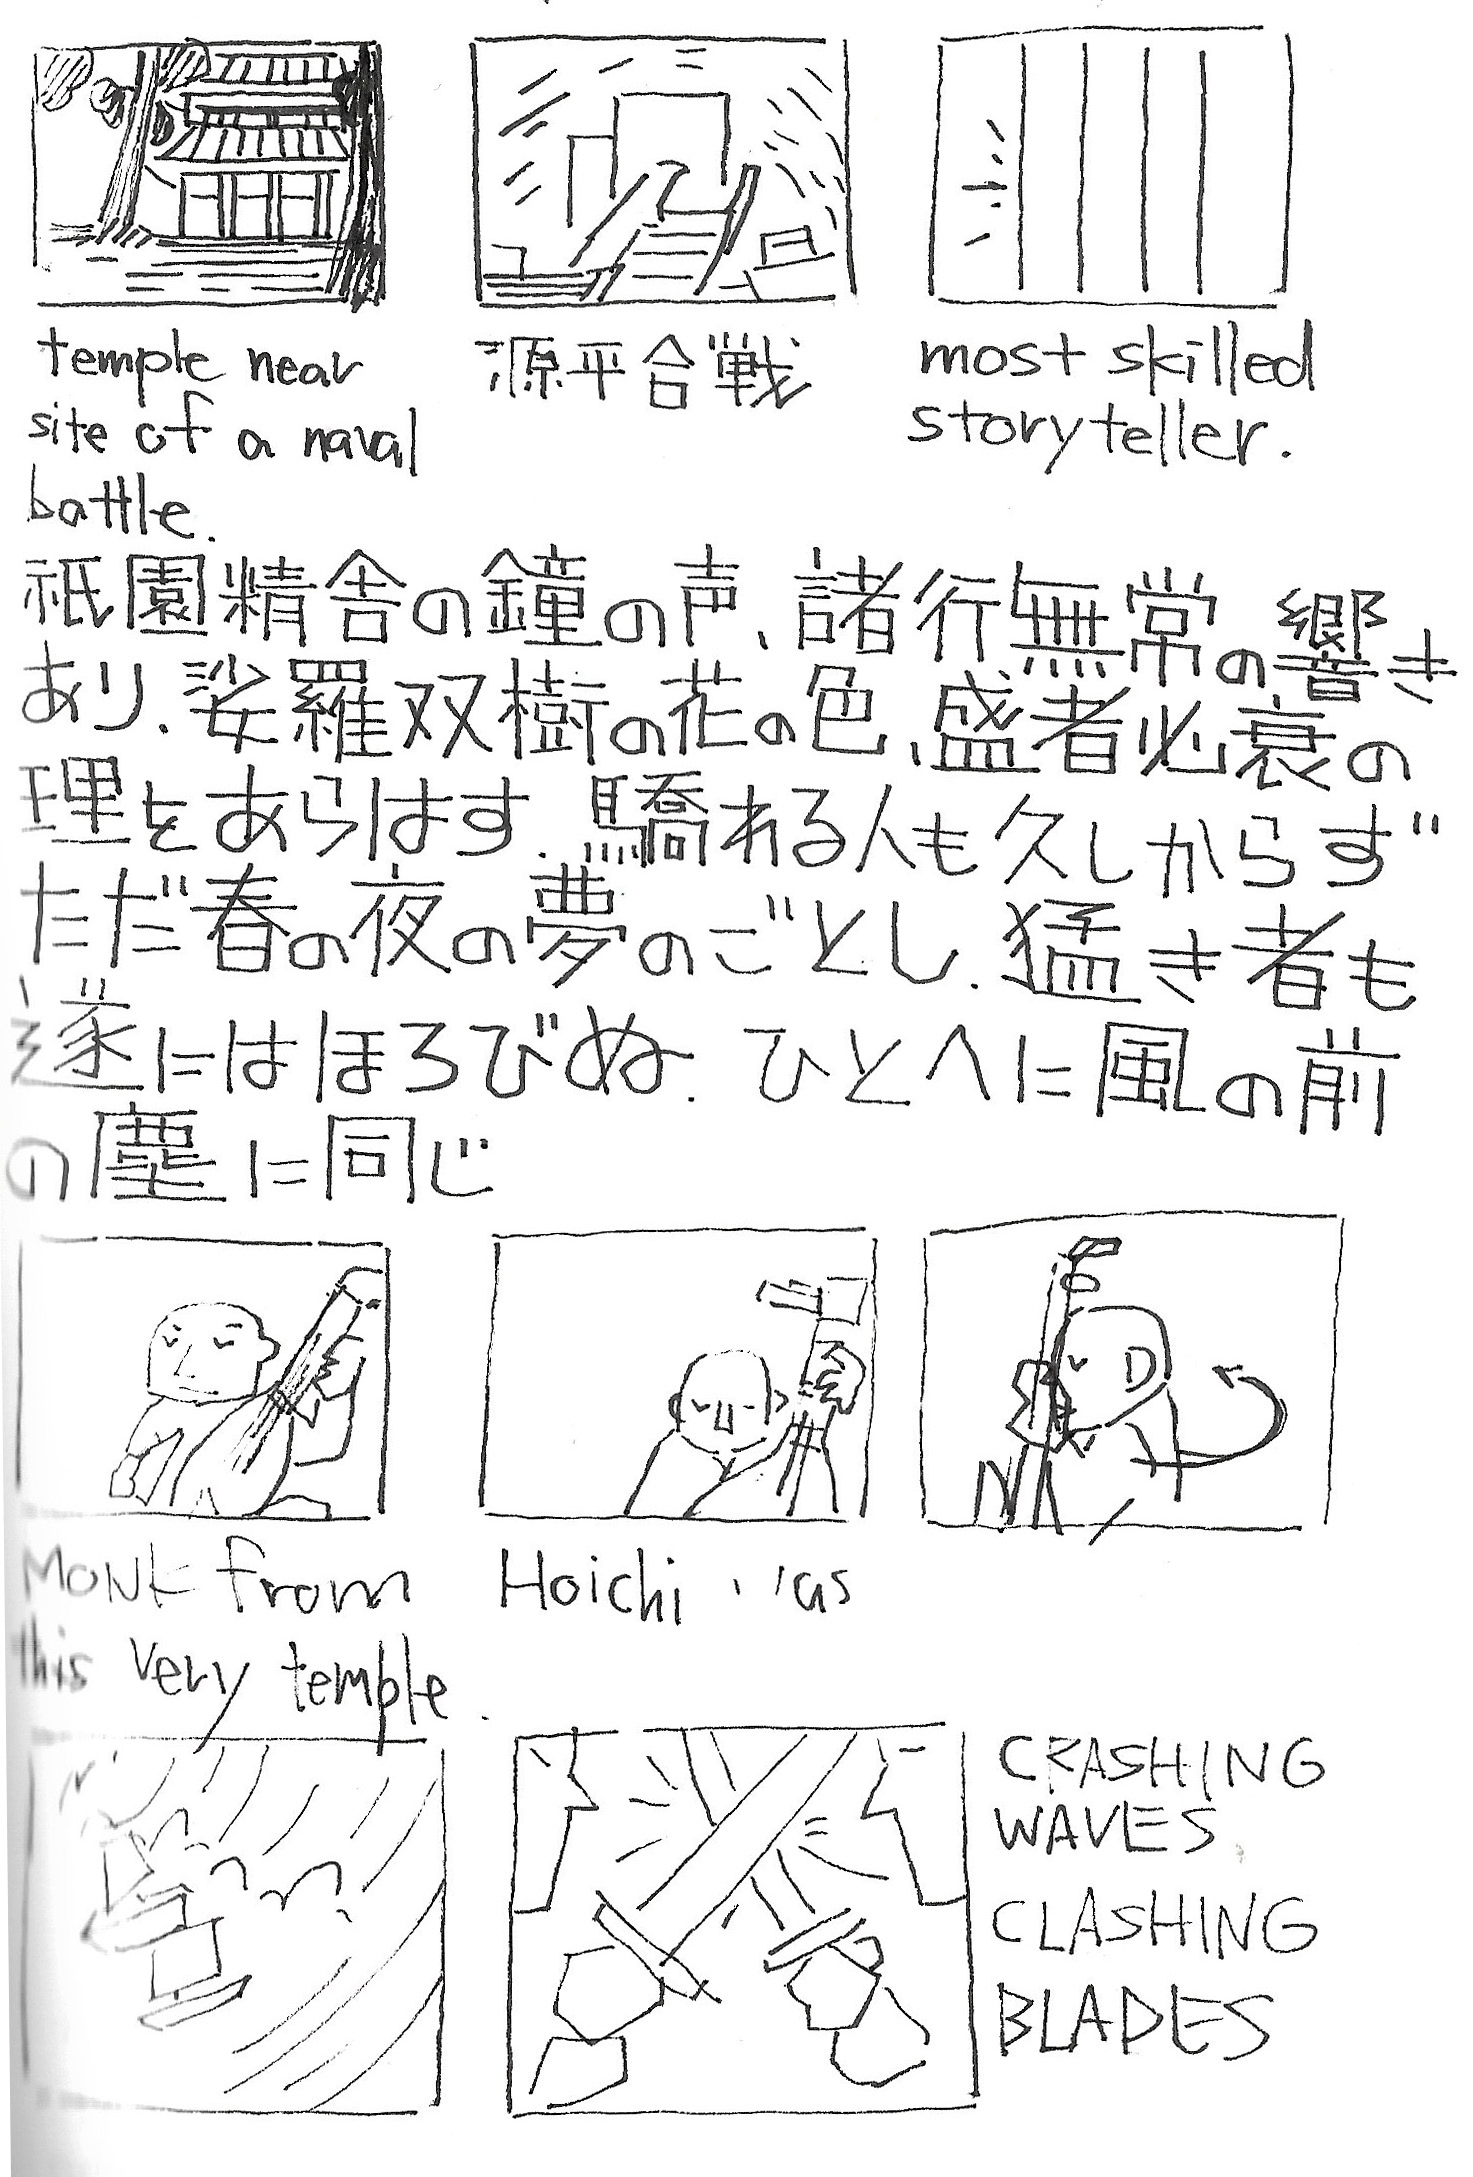 temple near
site of a naval
battle.
源平合戦
most skilled
storyteller.
祇園精舎の鐘の声、諸行無常の響き
あり、娑羅双樹の花の色、盛者必衰の
理をあらはす、驕れる人も久しからず
ただ春の夜の夢のごとし、猛き者も
遂にはほろびぬ、ひとへに風の前
の塵に同じ
Monk from
this very temple.
Hoichi
CRASHING
WAVES
CLASHING
BLADES